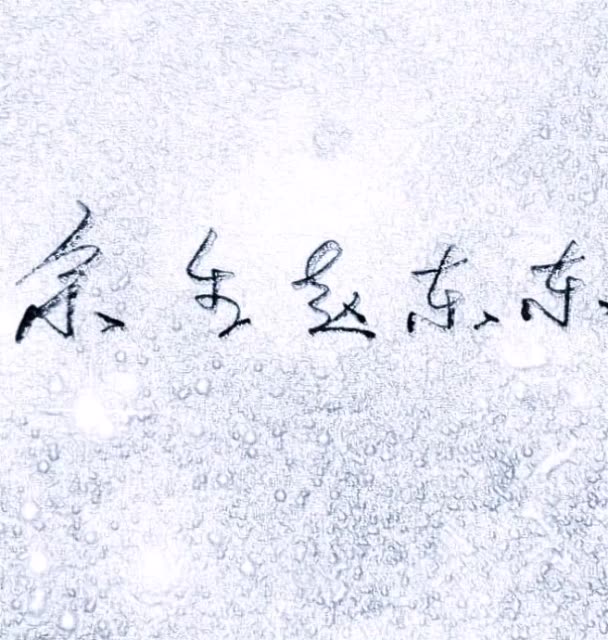 余生赵东东